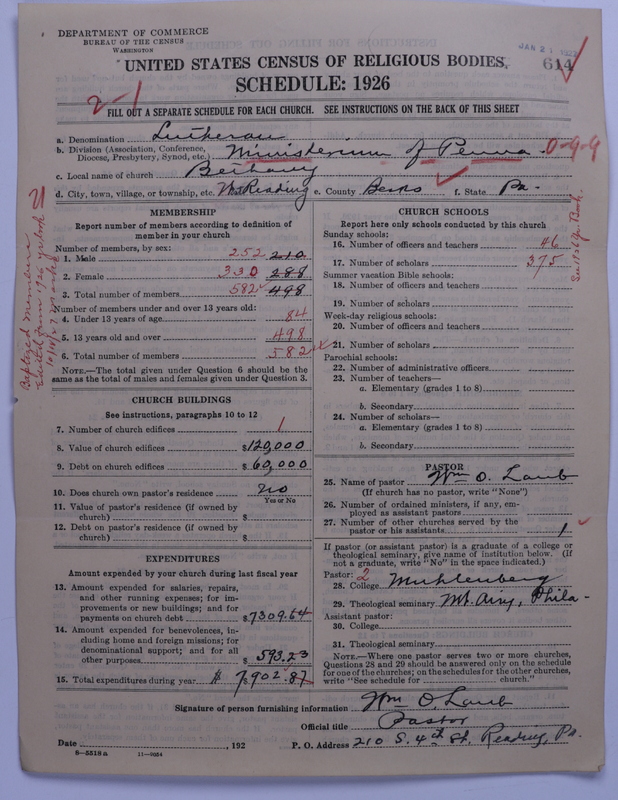 DEPARTMENT OF COMMERCE
BUREAU OF THE CENSUS
WASHINGTON
JAN 21 1927
614
UNITED STATES CENSUS OF RELIGIOUS BODIES
SCHEDULE: 1926
2-1
FILL OUT A SEPARATE SCHEDULE FOR EACH CHURCH. SEE INSTRUCTIONS ON THE BACK OF THIS SHEET
a. Denomination Lutheran
b. Division (Association, Conference, Diocese, Presbytery, Synod, etc.) Ministerium of Penna. 0-9-9
c. Local name of church Bethany
d. City, town, village, or township, etc. W. Reading e. County Berks f. State Pa.
MEMBERSHIP
Report number of members according to definition of
member in your church
Number of members, by sex:
1. Male 252 210
2. Female 330 288
3. Total number of members 582 498
Number of members under and over 13 years old:
4. Under 13 years of age 84
5. 13 years old and over 498
6. Total number of members 582
NOTE.—The total given under Question 6 should be
same as the total of males and females given under Question 3.
Baptized members
CHURCH BUILDINGS
See instructions, paragraphs 10 to 12
7. Number of church edifices 1
8. Value of church edifices $120,000
9. Debt on church edifices $60,000
10. Does church own pastor's residence No
Yes or No
11. Value of pastor's residence (if owned by
church) $
12. Debt on pastor's residence (if owned by
church) $
EXPENDITURES
Amount expended by your church during last fiscal year
13. Amount expended for salaries, repairs,
and other running expenses; for im-
provements or new buildings; and for
payments on church debt $7309.64
14. Amount expended for benevolences, in-
cluding home and foreign missions; for
denominational support; and for all
other purposes $593.23
15. Total expenditures during year $7,902.87
CHURCH SCHOOLS
Report here only schools conducted by this church
Sunday schools:
16. Number of officers and teachers 46
17. Number of scholars 375
Summer vacation Bible schools:
18. Number of officers and teachers
19. Number of scholars
Week-day religious schools:
20. Number of officers and teachers
21. Number of scholars
Parochial schools:
22. Number of administrative officers
23. Number of teachers—
a. Elementary (grades 1 to 8)
b. Secondary
24. Number of scholars—
a. Elementary (grades 1 to 8)
b. Secondary
PASTOR
25. Name of pastor Wm O. Laub
(If church has no pastor, write "None")
26. Number of ordained ministers, if any, em-
ployed as assistant pastors
27. Number of other churches served by the
pastor or his assistants 1
If pastor (or assistant pastor) is a graduate of a college or
theological seminary, give name of institution below. (If
not a graduate, write "No" in the space indicated.)
Pastor: 2
28. College Muhlenberg
29. Theological seminary Mt. Airy, Phila-
Assistant pastor:
30. College
31. Theological seminary
NOTE.—Where one pastor serves two or more churches,
Questions 28 and 29 should be answered only on the schedule
for one of the churches; on the schedules for the other churches,
write "See schedule for church."
Signature of person furnishing information Wm O Laub
Official title Pastor
Date , 192 P. O. Address 210 S. 4th St. Reading, Pa.
8—5518 a 11—9054